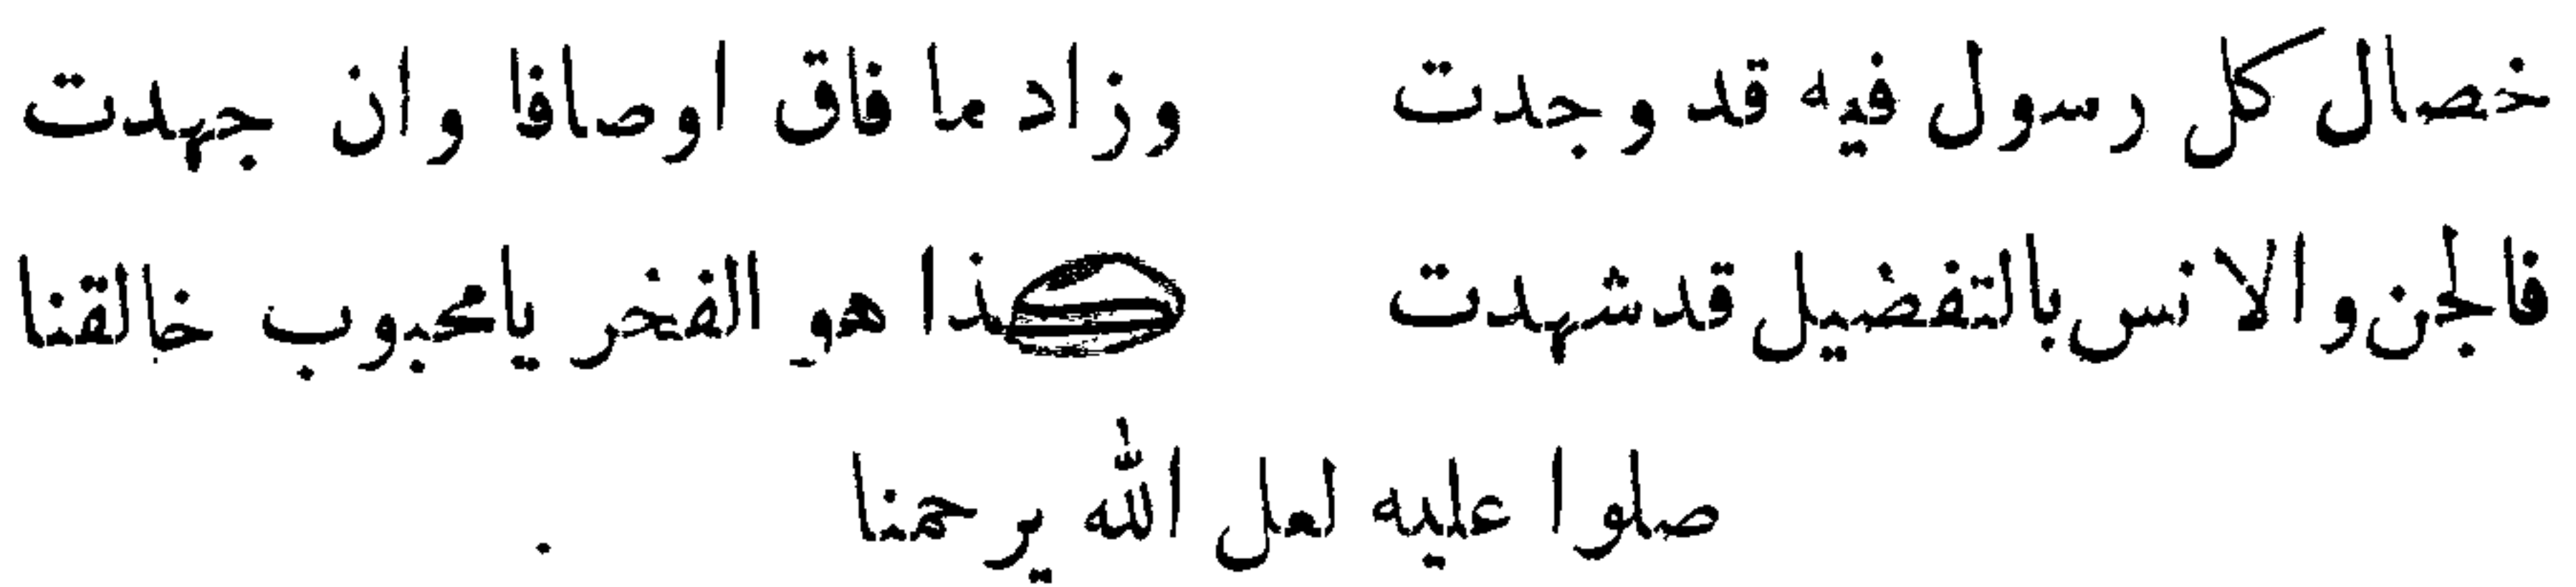 خصال كل رسول فيه قد وجدت وزاد ما فاق اوصافا وان جهدت
فالجن والانس بالتفضيل قد شهدت هو الفخر يا محبوب خالقنا
صلوا عليه لعل الله يرحمنا